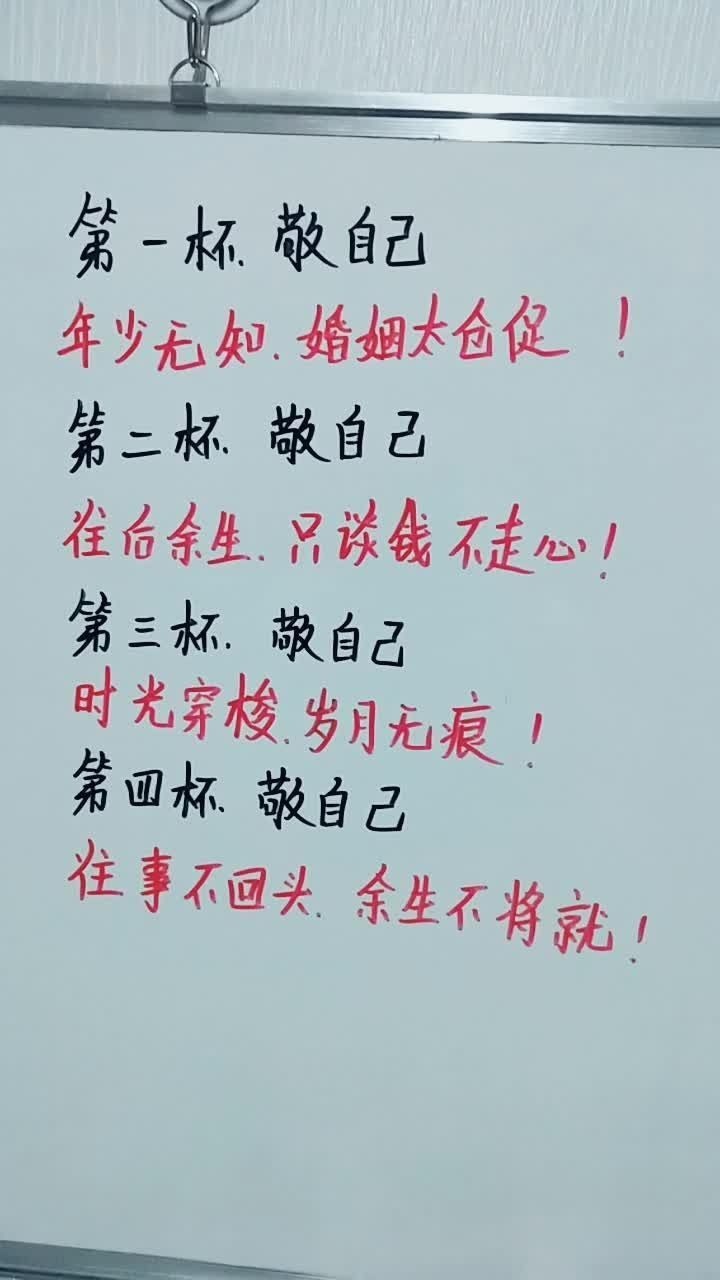 第一杯. 敬自己
年少无知. 婚姻太仓促 !
第二杯. 敬自己
往后余生. 只谈钱不走心!
第三杯. 敬自己
时光穿梭. 岁月无痕!
第四杯. 敬自己
往事不回头. 余生不将就!